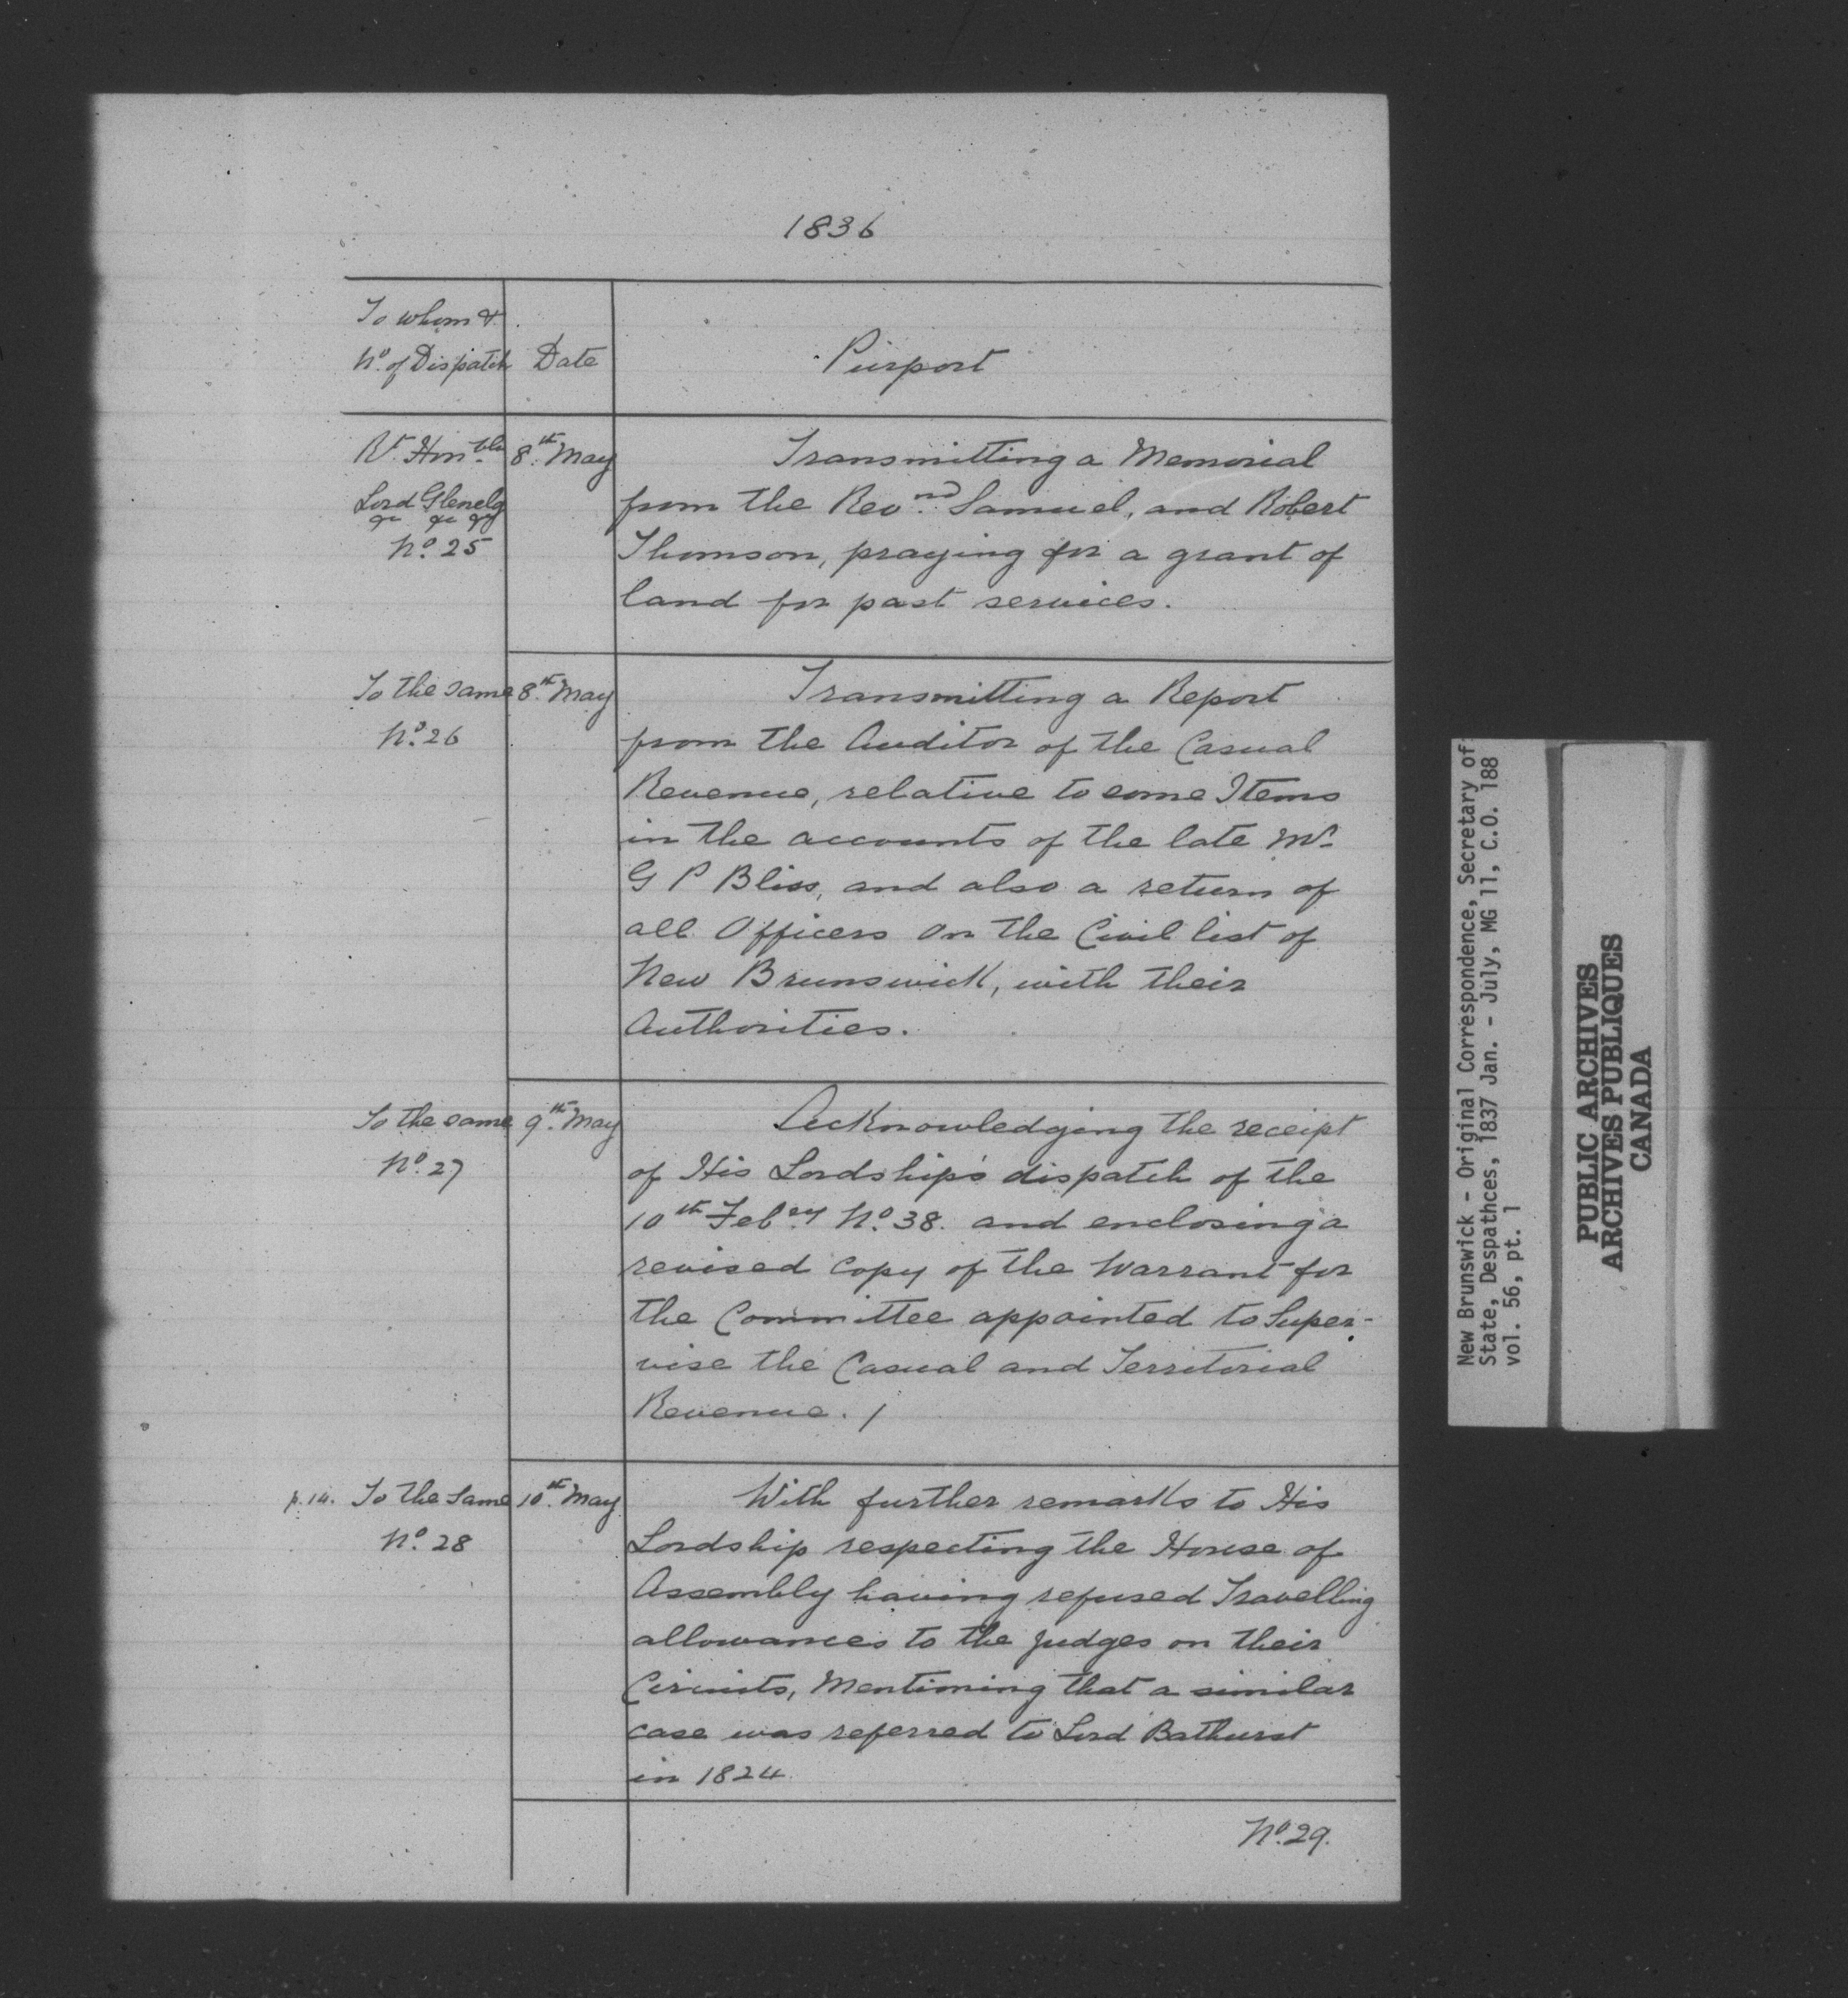 1836
To whom &
No. of Dispatch Date Purport
Rt. Honble 8th May Transmitting a Memorial
Lord Glenelg from the Revnd Samuel, and Robert
&c &c &c
No. 25 Thomson, praying for a grant of
land for past services.
To the same 8th May Transmitting a Report
No. 26 from the Auditor of the Casual
Revenue, relative to some Items
in the accounts of the late Mr.
G P Bliss, and also a return of
all Officers on the Civil list of
New Brunswick, with their
Authorities.
To the same 9th May Acknowledging the receipt
No. 27 of His Lordship's dispatch of the
10th Febry No. 38. and enclosing a
revised Copy of the Warrant for
the Committee appointed to Super-
vise the Casual and Territorial
Revenue. /
p. 14. To the Same 10th May With further remarks to His
No. 28 Lordship respecting the House of
Assembly having refused Travelling
allowances to the judges on their
Circuits, Mentioning that a similar
case was referred to Lord Bathurst
in 1824.
No. 29.
New Brunswick - Original Correspondence, Secretary of
State, Despathces, 1837 Jan. - July, MG 11, C.O. 188
vol. 56, pt. 1
PUBLIC ARCHIVES
ARCHIVES PUBLIQUES
CANADA